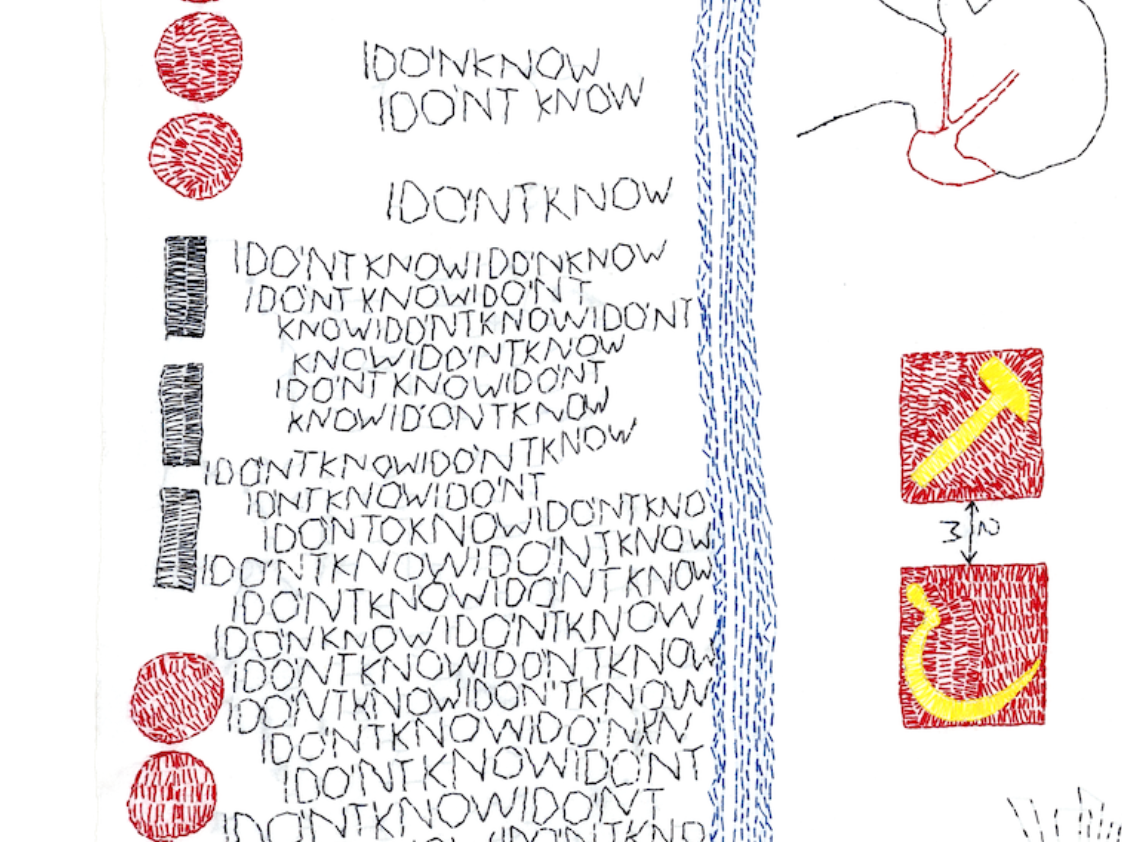 IDO'NKNOW
IDO'NT KNOW
IDO'NTKNOW
IDO'NT KNOWIDO'NKNOW
IDO'NT KNOWIDO'NT
KNOWIDO'NTKNOWIDO'NT
KNOWIDO'NTKNOW
IDO'NT KNOWIDO'NT
KNOWIDO'NTKNOW
IDO'NTKNOWIDO'NTKNOW
IDNTKNOWIDO'NT
IDONTOKNOWIDO'NTKNO
IDO'NTKNOWIDO'NTKNOW
IDO'NTKNOWIDO'NT KNOW
IDO'NKNOWIDO'NTKNOW
IDO'NTKNOWIDO'NTKNOW
IDO'NTKNOWIDON'TKNOW
IDO'NTKNOWIDO'NKN
IDO'NTKNOWIDO'NT
IDO'NTKNOWIDO'NT
IDO'NTKNO
3 N